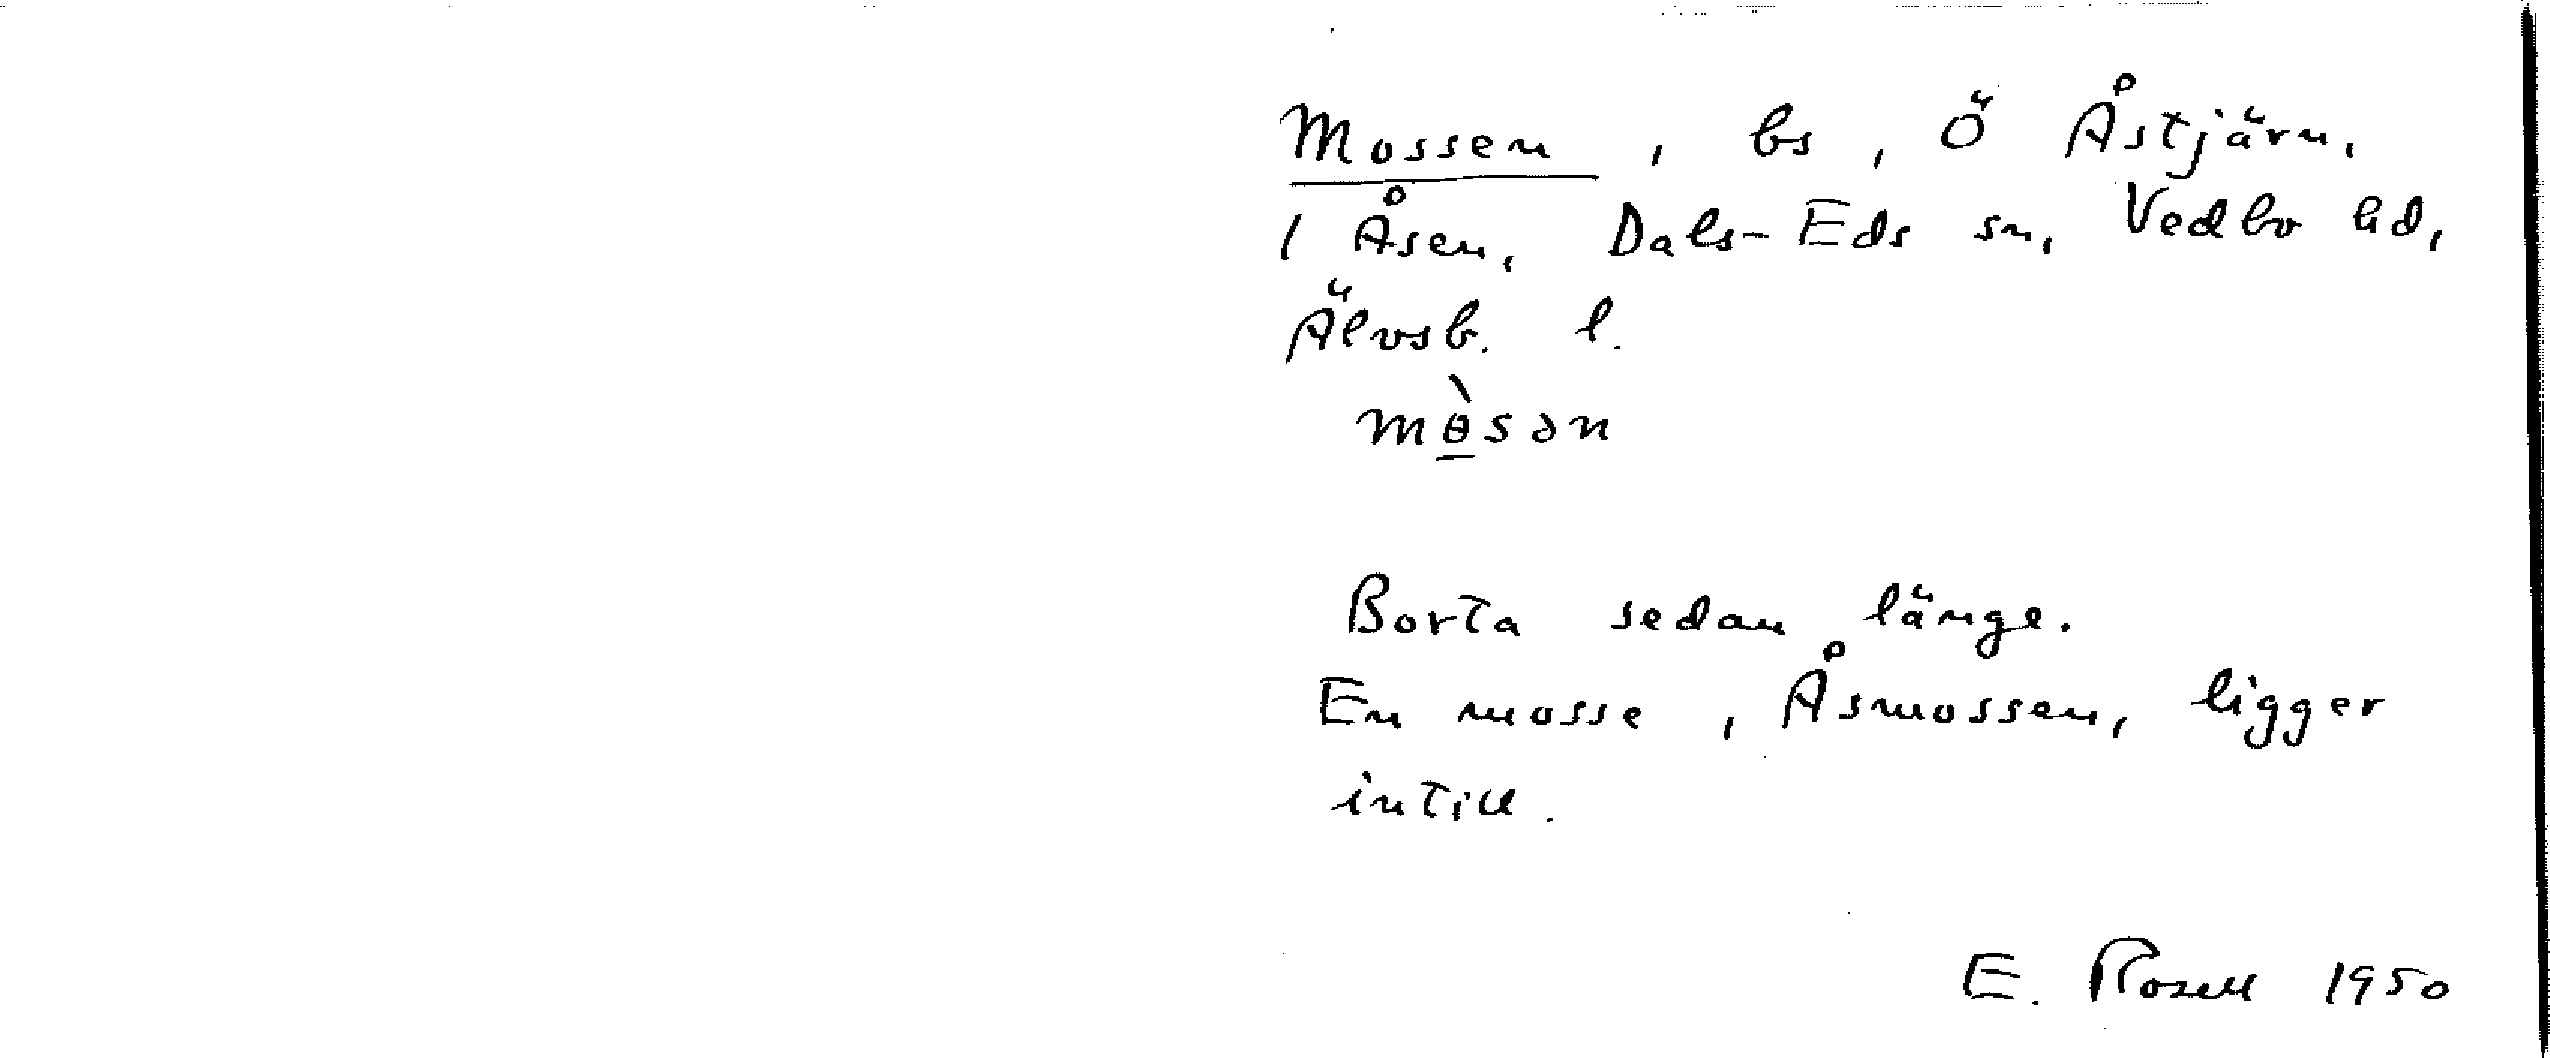 Mossen, bs, Ö Åstjärn,
1 Åsen, Dals-Eds sn, Vedbo hd,
Älvsb. l.
mө̲̀sən
Borta sedan länge.
En mosse, Åsmossen, ligger
intill.
E. Rosell 1950